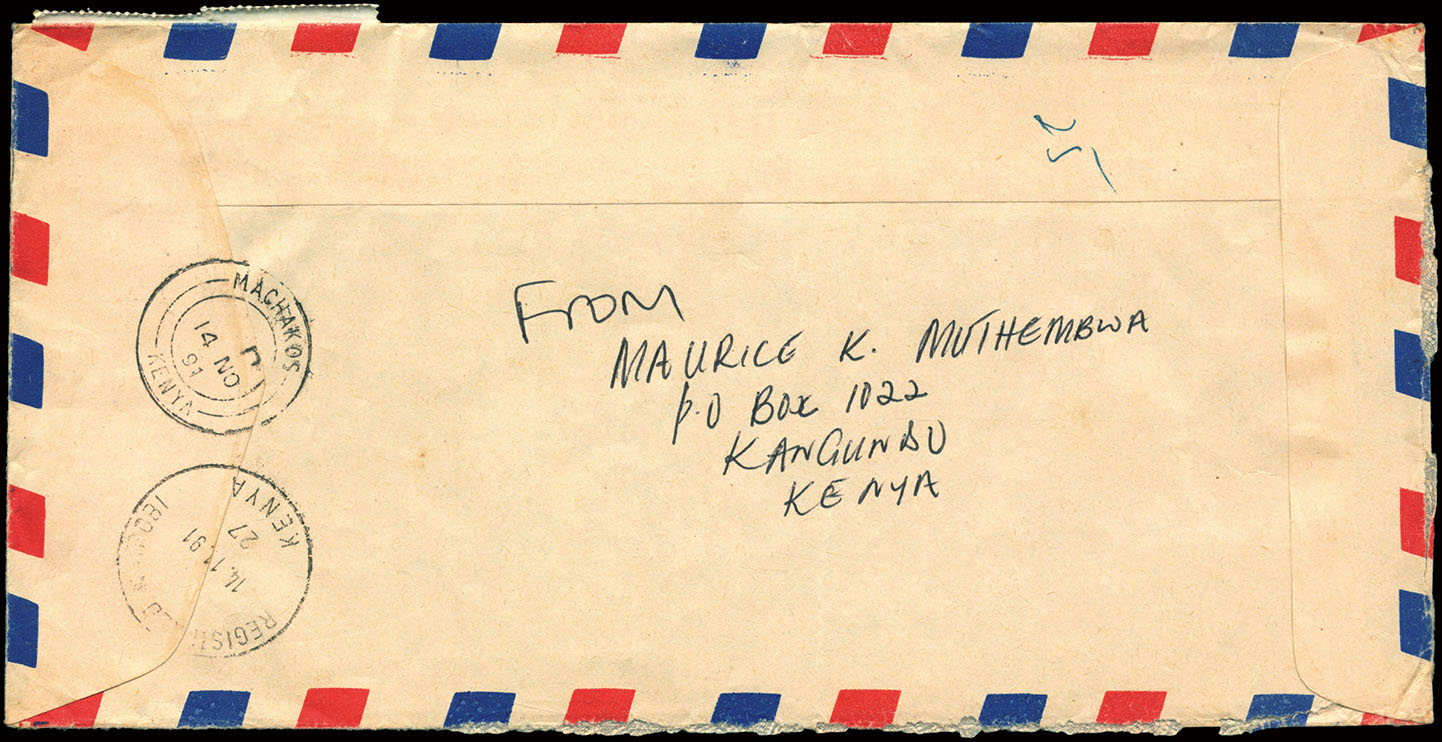 From
MAURICE K. MUTHEMBWA
P.O BOX 1022
KANGUNDO
KENYA
MACHAKOS
14 NO
91
KENYA
KENYA
27
14.11.91